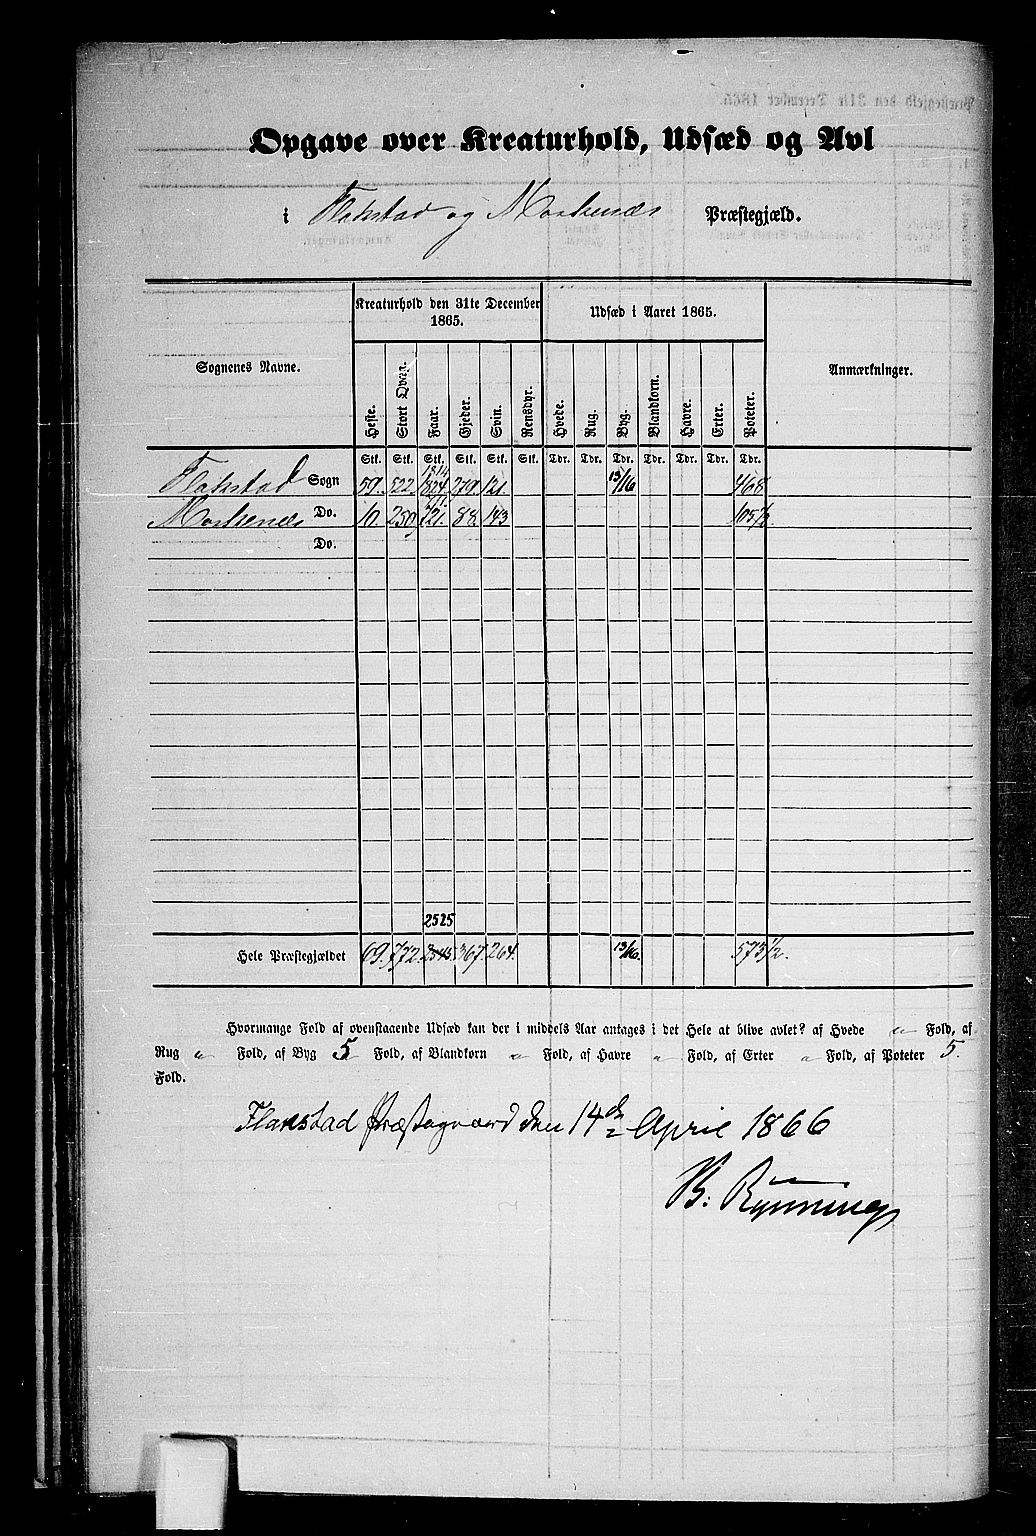 Opgave over Kreaturhold, Udsæd og Avl
i Flakstad og Moskenæs Præstegjæld.
Sognenes Navne.
Kreaturhold den 31te December 1865.
Udsæd i Aaret 1865.
Anmærkninger.
Heste. Stort Qvæg. Faar. Gjeder. Svin. Rensdyr. Hvede. Rug. Byg. Blandkorn. Havre. Erter. Poteter.
Stk. Stk. Stk. Stk. Stk. Stk. Tdr. Tdr. Tdr. Tdr. Tdr. Tdr. Tdr.
1814
Flakstad Sogn 59. 522. 1824. 279. 121. 13/16 468
Moskenæs Do. 10. 250. 721. 88. 143 105 1/2
Do.
2525
Hele Præstegjældet 69. 772. 2545. 367. 264. 13/16. 573 1/2.
Hvormange Fold af ovenstaaende Udsæd kan der i middels Aar antages i det Hele at blive avlet? af Hvede " Fold, af
Rug " Fold, af Byg 5 Fold, af Blandkorn " Fold, af Havre " Fold, af Erter " Fold, af Poteter 5.
Fold.
Flakstad Præstegaard den 14de April 1866
B. Rynning